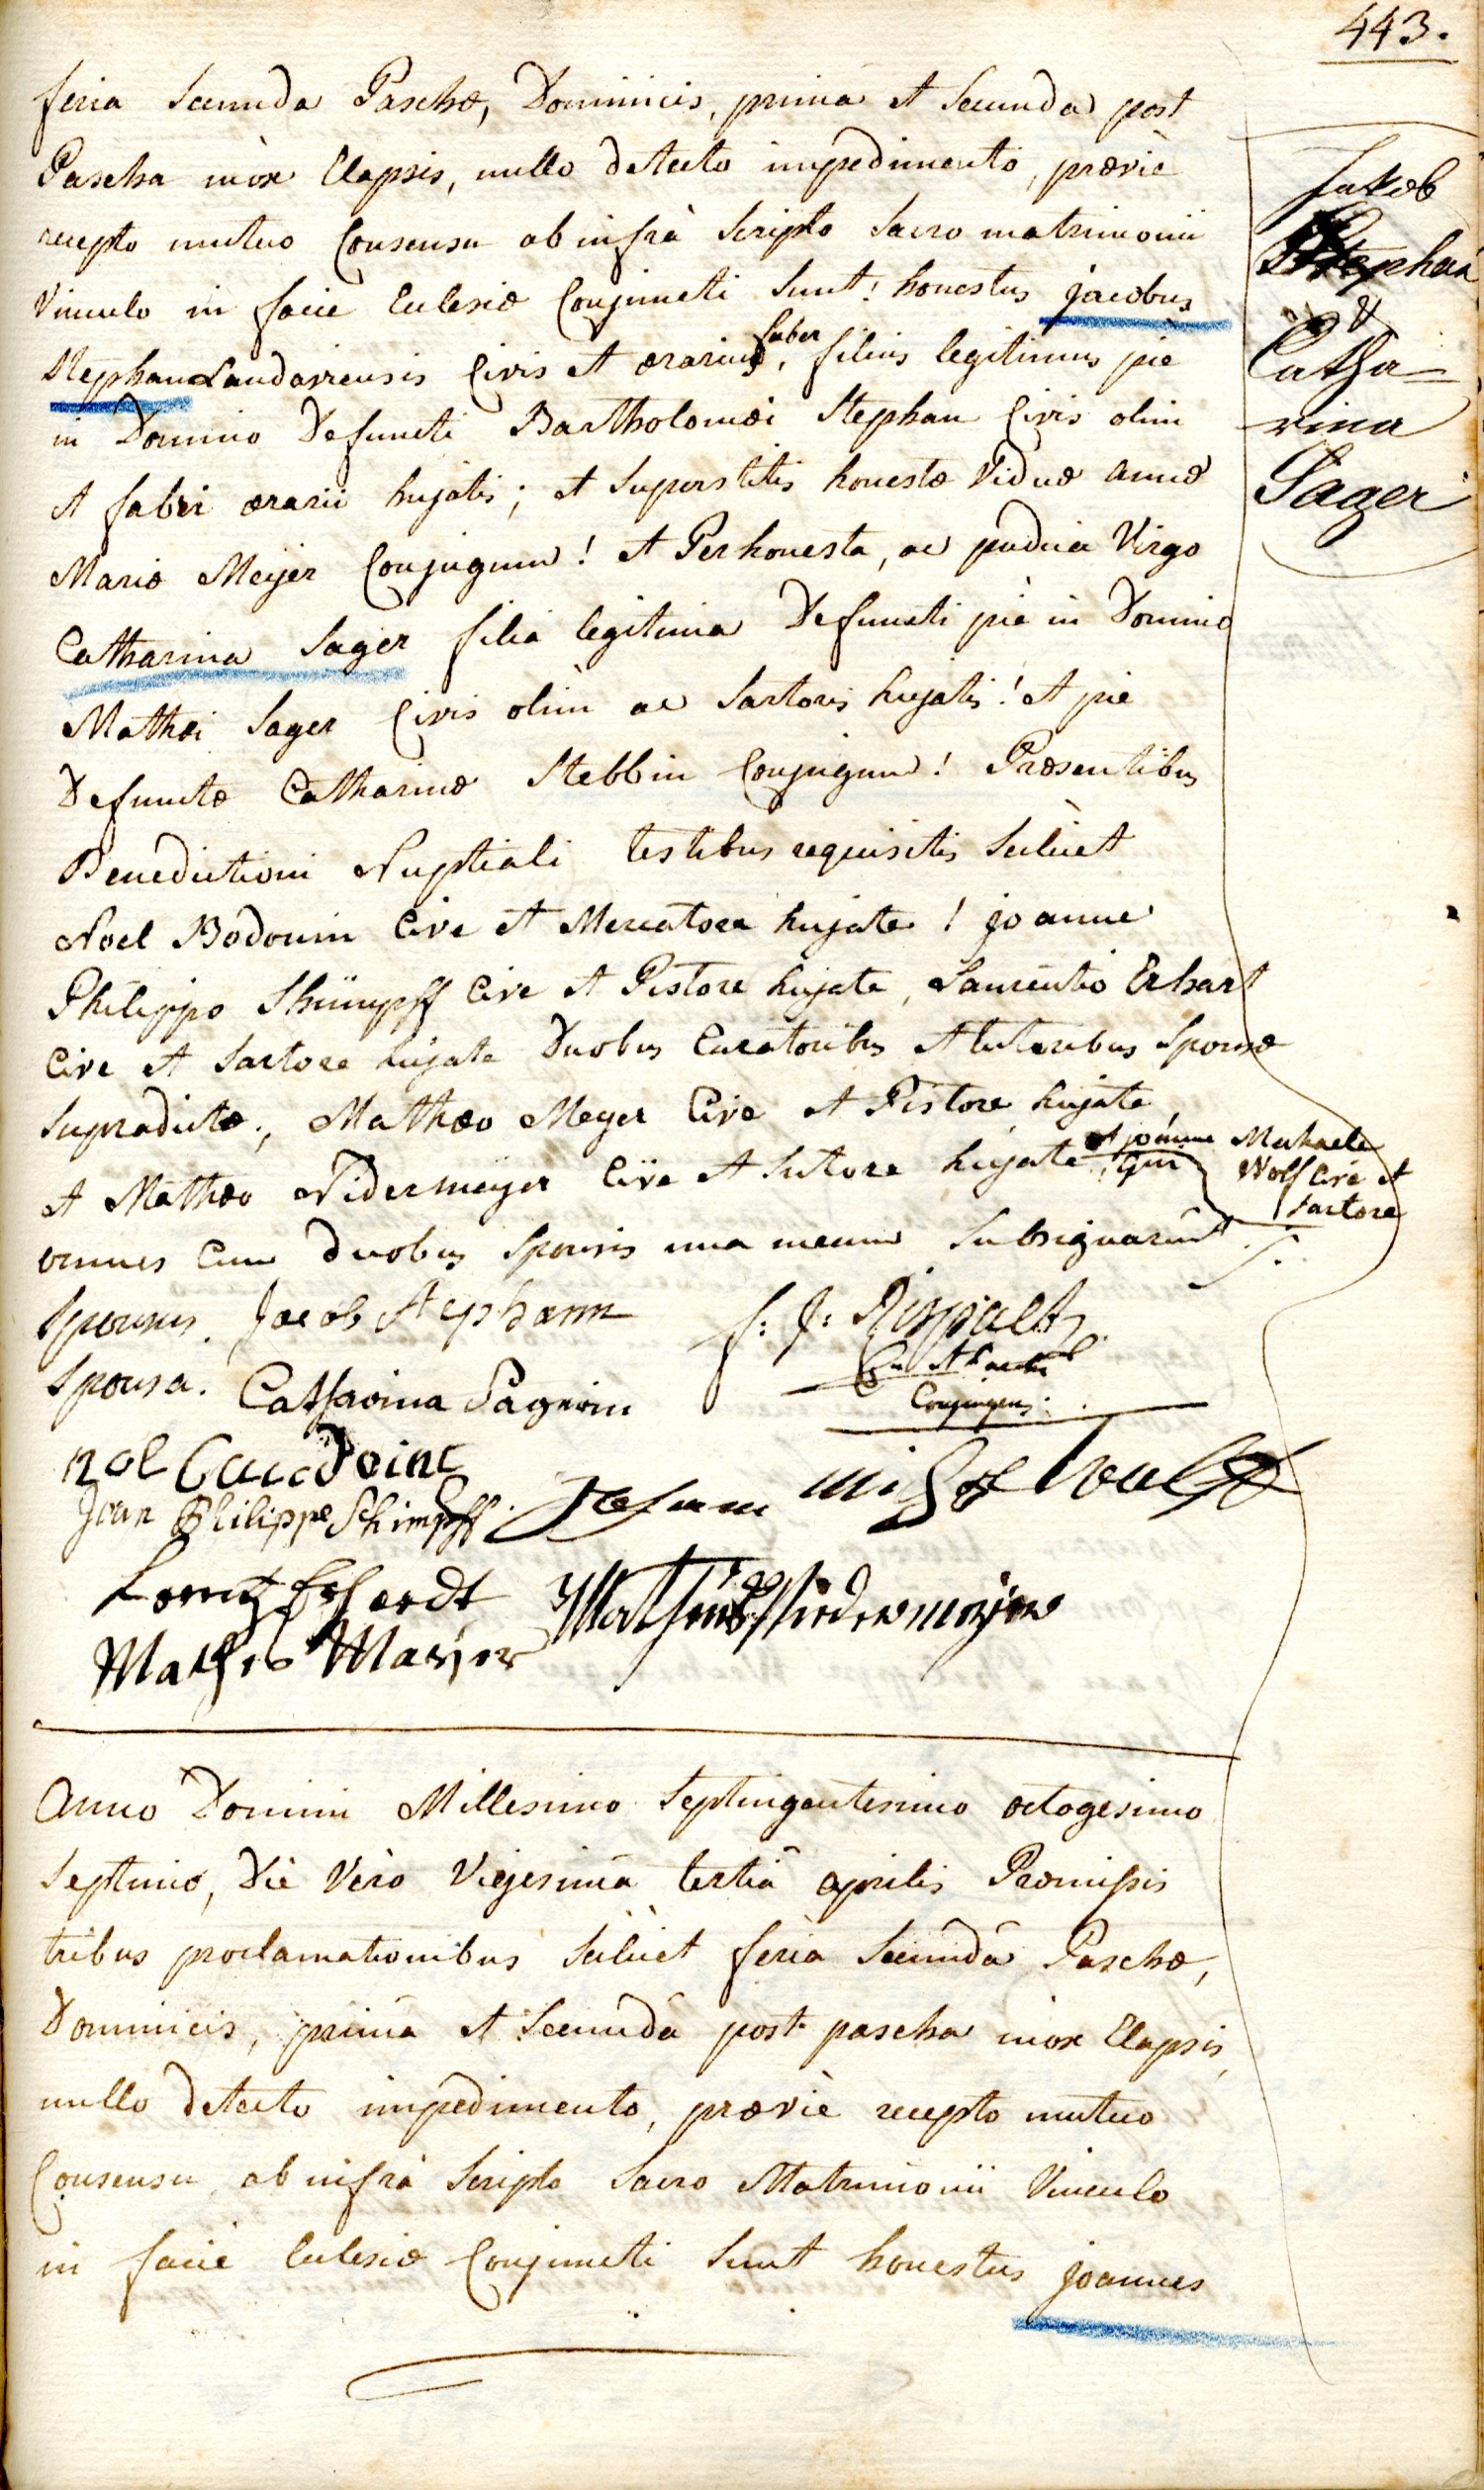 443.
feria secunda Paschæ, Dominicis, prima et secunda post
Pascha mòx Elapsis, nullo detecto impedimento, prævie
recepto mutuo Consensu ab infrà scripto sacro matrimonii
Vinculo in facie Eclesiæ Conjuncti sunt! honestus jacobus
Stephan Landaviensis Civis et ærarius faber, filius legitimus pie
in Domino Defuncti Bartholomæi Stephan Civis olim
et fabri ærarii hujatis; et superstitis honestæ Viduæ annæ
Mariæ Meijer Conjugum! et Perhonesta, ac pudica Virgo
Catharina Sager filia legitima Defuncti piè in Domino
Mathæi Sager Civis olim ac Sartoris hujatis! et pie
Defunctæ Catharinæ Stebbin Conjugum! Præsentibus
Benedictioni Nuptiali testibus requisitis scilicet
Noel Bodouin Cive et Mercatore hujate! joanne
Philippo Shümpff Cive et Pistore hujate, Laurentio Erhart
Cive et Sartore hujate Duobus Curatoribus et tutoribus Sponsæ
supradictæ, Mathæo Meyer Cive et Pistore hujate,
et Mathæo Nidermeÿer Cive et Sutore hujate, et joanne Michaele Wolf Cive et Sartore qui
omnes cum duobus sponsis una mecum subsignarunt.
Jakob
Stephan
&
Catha-
rina
Sager
Sponsus. Jacob Stephann
Sponsa. Catharina Sagerin
Conjungens.
nol Baudoint
Jean Philippe Schimpff. Johann Michel Wolf
Lorentz Erhardt
Mathias Niedermayer
Mathes Mayer
Anno Domini Millesimo Septingentesimo octogesimo
septimo, Die Vero Vigesima tertia aprilis Præmissis
tribus proclamationibus scilicet feria secunda Paschæ,
Dominicis, prima et secunda post pascha mox Elapsis,
nullo detecto impedimento, prævie recepto mutuo
Consensu ab infrà scripto sacro Matrimonii Vinculo
in facie Eclesiæ Conjuncti sunt honestus joannes